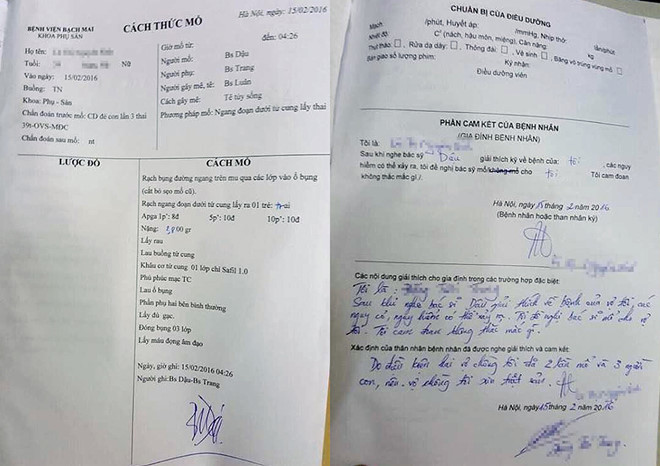 BỆNH VIỆN BẠCH MAI
KHOA PHỤ SẢN
CÁCH THỨC MỔ
Hà Nội, ngày: 15/02/2016
đến: 04:26
Họ tên:
Tuổi: Nữ
Vào ngày: 15/02/2016
Buồng: TN
Khoa: Phụ - Sản
Chẩn đoán trước mổ: CD đẻ con lần 3 thai
39t-OVS-MĐC
Chẩn đoán sau mổ: nt
Giờ mổ từ:
Người mổ: Bs Dậu
Người phụ: Bs Trang
Người gây mê, tê: Bs Luân
Cách gây mê: Tê tủy sống
Phương pháp mổ: Ngang đoạn dưới tử cung lấy thai
LƯỢC ĐỒ
CÁCH MỔ
Rạch bụng đường ngang trên mu qua các lớp vào ổ bụng
(cắt bỏ sẹo mổ cũ).
Rạch ngang đoạn dưới tử cung lấy ra 01 trẻ: trai
Apga 1p': 8đ 5p': 10đ 10p': 10đ
Nặng: 3,800 gr
Lấy rau
Lau buồng tử cung
Khâu cơ tử cung 01 lớp chỉ Safil 1.0
Phủ phúc mạc TC
Lau ổ bụng
Phần phụ hai bên bình thường
Lấy đủ gạc.
Đóng bụng 03 lớp
Lấy máu đọng âm đạo
Ngày, giờ ghi: 15/02/2016 04:26
Người ghi:Bs Dậu-Bs Trang
CHUẨN BỊ CỦA ĐIỀU DƯỠNG
Mạch /phút, Huyết áp: /mmHg, Nhịp thở: lần/phút
Nhiệt độ: C° (nách, hậu môn, miệng), Cân nặng: kg
Thử tháo: , Rửa dạ dày: , Thông đái: , Vệ sinh , Băng vô trùng vùng mổ
Bàn giao số lượng phim: Ký nhận:
Điều dưỡng viên
PHẦN CAM KẾT CỦA BỆNH NHÂN
(GIA ĐÌNH BỆNH NHÂN)
Tôi là:
Sau khi nghe bác sỹ Dậu giải thích kỹ về bệnh của: tôi , các nguy
hiểm có thể xảy ra, tôi đề nghị bác sỹ mổ/không mổ cho tôi Tôi cam đoan
không thắc mắc gì./.
Hà Nội, ngày 15 tháng 2 năm 2016
(Bệnh nhân hoặc thân nhân ký)
Các nội dung giải thích cho gia đình trong các trường hợp đặc biệt:
Tôi là:
Sau khi nghe bác sĩ Dậu giải thích về bệnh của vợ tôi, các
nguy cơ, nguy hiểm có thể xảy ra. Tôi đề nghị bác sĩ mổ cho vợ
tôi. Tôi cam đoan không thắc mắc gì.
Xác định của thân nhân bệnh nhân đã được nghe giải thích và cam kết:
Do điều kiện hai vợ chồng tôi đã 2 lần mổ và 3 người
con, nên vợ chồng tôi xin triệt sản.
Hà Nội, ngày 15 tháng 2 năm 2016